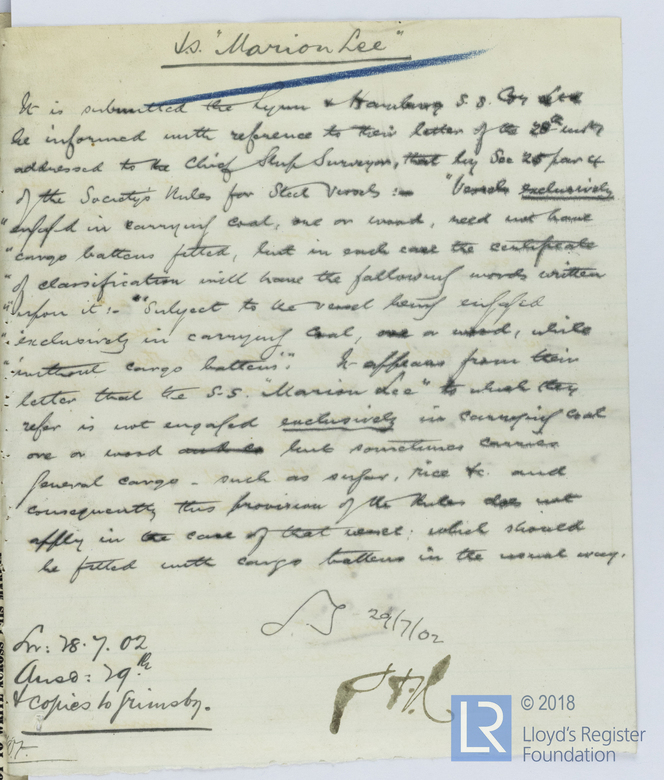 s.s. "Marion Lee"
It is submitted the Lynn & Hamburg S.S. Coy Ltd
be informed with reference to their letter of the 28th inst
addressed to the Chief Ship Surveyor, that by Sec 25 par 4
of the Society's Rules for Steel Vessels :- "Vessels exclusively
"engaged in carrying coal, ore or wood, need not have
"cargo battens fitted, but in each case the certificate
"of classification will have the following words written
"upon it :- "Subject to the vessel being engaged
"exclusively in carrying coal, ore or wood, while
"without cargo battens". It appears from their
letter that the S.S. "Marion Lee" to which they
refer is not engaged exclusively in carrying coal
ore or wood but sometimes carries
general cargo - such as sugar, rice &c. and
consequently this provision of the Rules does not
apply in the case of that vessel, which should
be fitted with cargo battens in the usual way.
29/7/02
Lr: 28.7.02
Ansd: 29th
& copies to Grimsby.
07.
LR
© 2018
Lloyd's Register
Foundation